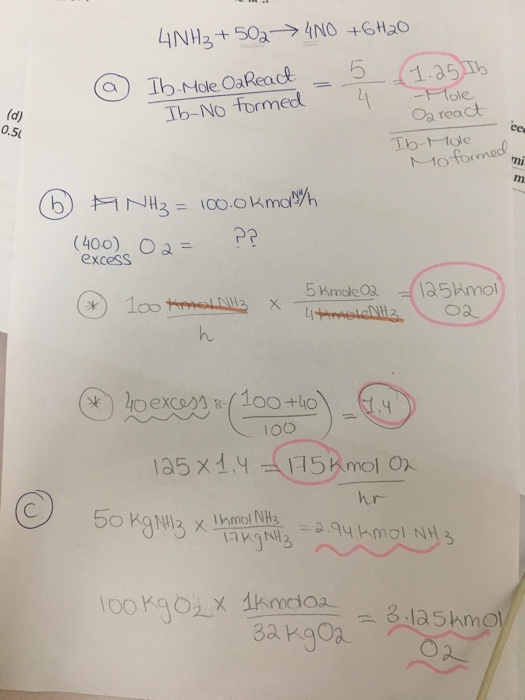 4NH3 + 5O2 → 4NO + 6H2O
(a) Ib-Mole O2 React / Ib-NO formed = 5/4 = 1.25 Ib-Mole O2 react / Ib-Mole NO formed
(d)
0.5(
mi
m
(b) NH3 = 100.0 kmol NH3/h
(40.0) excess O2 = ??
* 100 kmol NH3 / h × 5 kmole O2 / 4 kmole NH3 = 125 kmol O2
* 40 excess :- (100+40 / 100) = 1.4
125 × 1.4 = 175 kmol O2 / hr
(C) 50 kg NH3 × 1 kmol NH3 / 17 kg NH3 = 2.94 kmol NH3
100 kg O2 × 1 kmol O2 / 32 kg O2 = 3.125 kmol O2